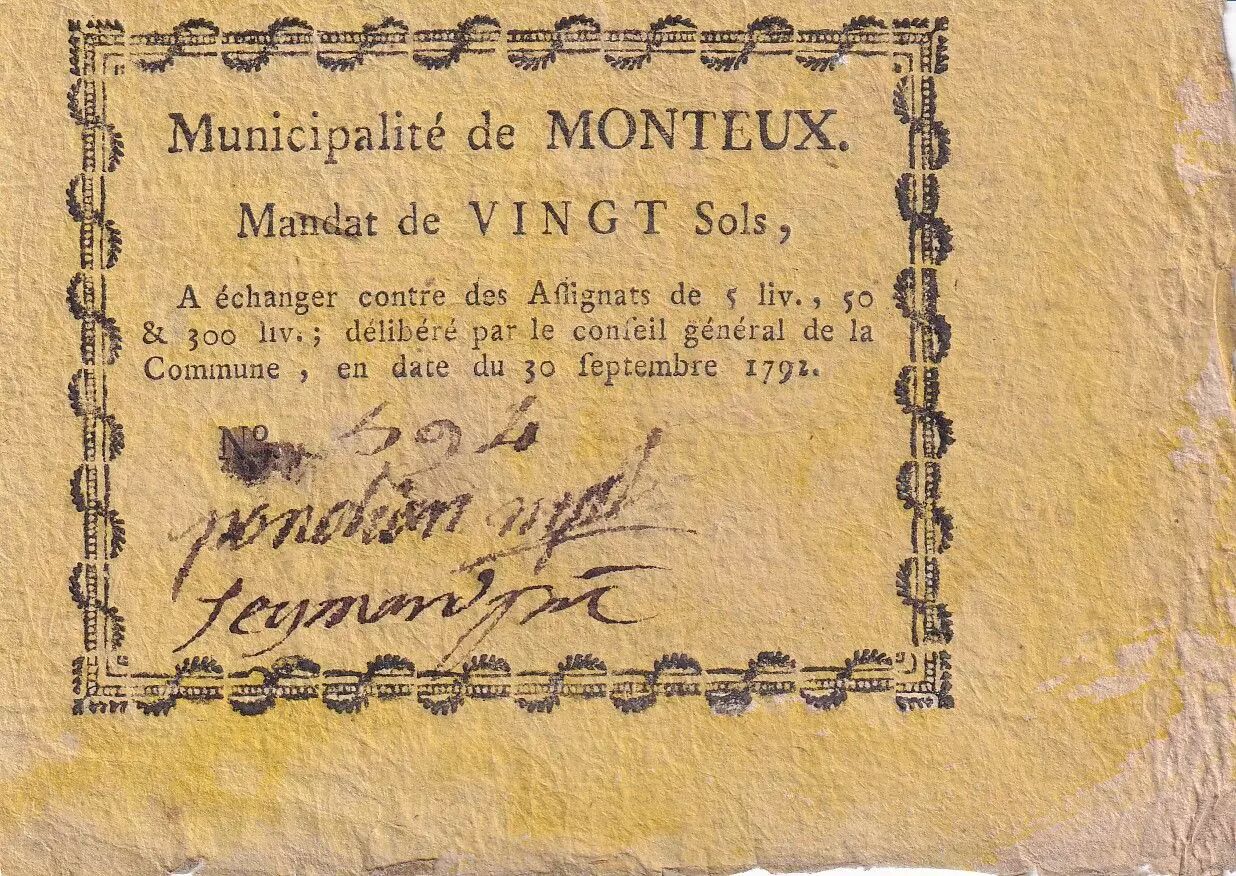 Municipalité de MONTEUX.
Mandat de VINGT Sols,
A échanger contre des Aſſignats de 5 liv., 50
& 300 liv.; délibéré par le conſeil général de la
Commune, en date du 30 ſeptembre 1792.
Nº. 594